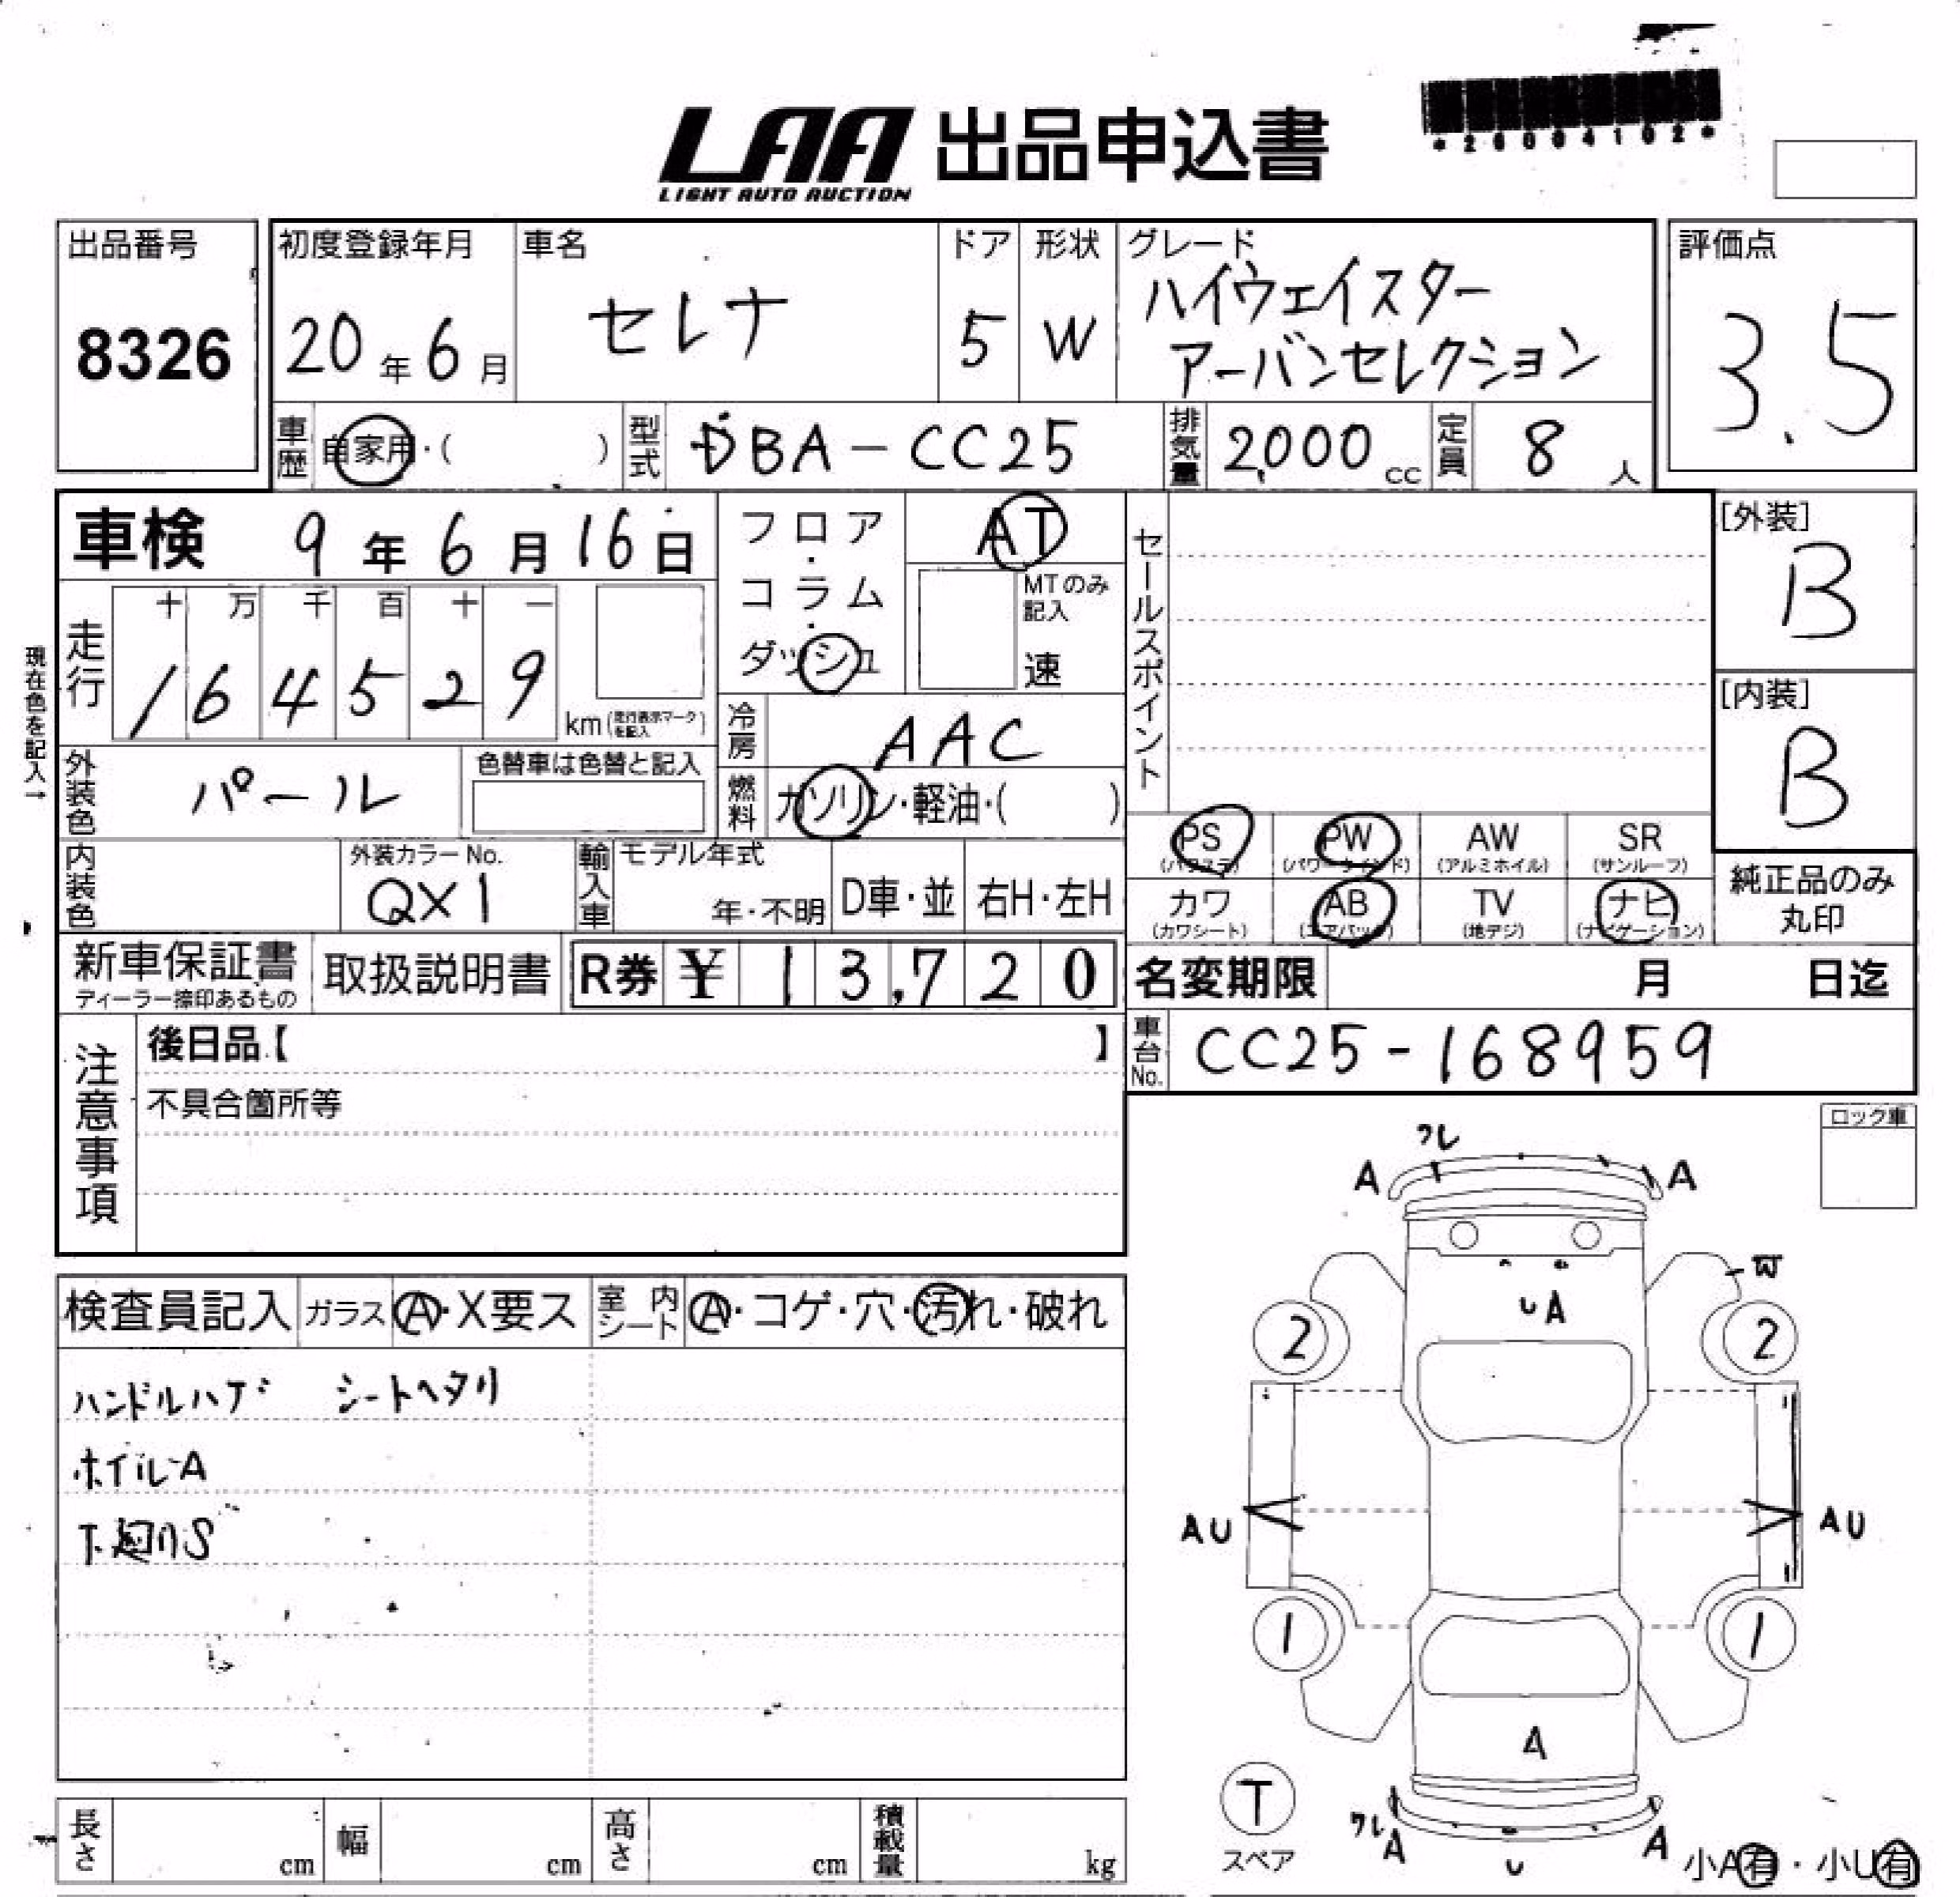 LAA 出品申込書
LIGHT AUTO AUCTION
*26004102*
出品番号
8326
初度登録年月
20年6月
車名
セレナ
ドア
5
形状
W
グレード
ハイウェイスター
アーバンセレクション
評価点
3.5
車歴 自家用・( )
型式 DBA-CC25
排気量 2,000 cc
定員 8 人
車検 9年6月16日
フロア・コラム・ダッシュ
AT
MTのみ記入
速
セールスポイント
[外装]
B
[内装]
B
現在色を記入→
走行
十 万 千 百 十 一
1 6 4 5 2 9
km (走行表示マークを記入)
冷房 AAC
外装色 パール
色替車は色替と記入
燃料 ガソリン・軽油・( )
内装色
外装カラーNo.
QX1
輸入車
モデル年式
年・不明
D車・並
右H・左H
PS (パワステ)
PW (パワーウインド)
AW (アルミホイル)
SR (サンルーフ)
カワ (カワシート)
AB (エアバック)
TV (地デジ)
ナビ (ナビゲーション)
純正品のみ
丸印
新車保証書
ディーラー捺印あるもの
取扱説明書
R券 ¥ 13,720
名変期限 月 日迄
車台No. CC25-168959
注意事項
後日品【 】
不具合箇所等
ロック車
ワレ
A A
W
U A
2 2
AU AU
1 1
A
T
スペア
ワレ
A A
U
小A有・小U有
検査員記入
ガラス A・X要ス
室内シート A・コゲ・穴・汚れ・破れ
ハンドルハゲ シートヘタリ
ホイルA
下廻りS
長さ cm
幅 cm
高さ cm
積載量 kg